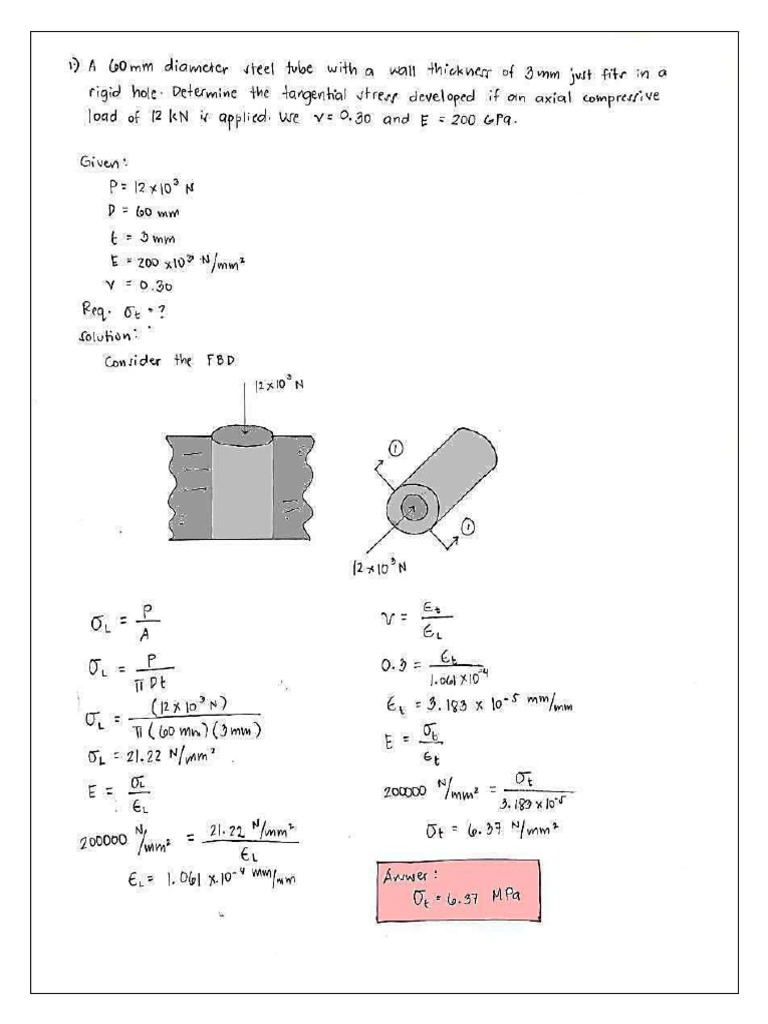 1.) A 60mm diameter steel tube with a wall thickness of 3mm just fits in a
rigid hole. Determine the tangential stress developed if an axial compressive
load of 12 kN is applied. Use ν = 0.30 and E = 200 GPa.
Given:
P = 12 × 10³ N
D = 60 mm
t = 3 mm
E = 200 × 10³ N/mm²
ν = 0.30
Req. σt = ?
Solution:
Consider the FBD
12 × 10³ N
①
①
12 × 10³ N
σL = P/A
σL = P/πDt
σL = (12 × 10³ N)/π(60 mm)(3 mm)
σL = 21.22 N/mm²
E = σL/εL
200000 N/mm² = 21.22 N/mm²/εL
εL = 1.061 × 10⁻⁴ mm/mm
ν = εt/εL
0.3 = εt/1.061 × 10⁻⁴
εt = 3.183 × 10⁻⁵ mm/mm
E = σt/εt
200000 N/mm² = σt/3.183 × 10⁻⁵
σt = 6.37 N/mm²
Answer:
σt = 6.37 MPa